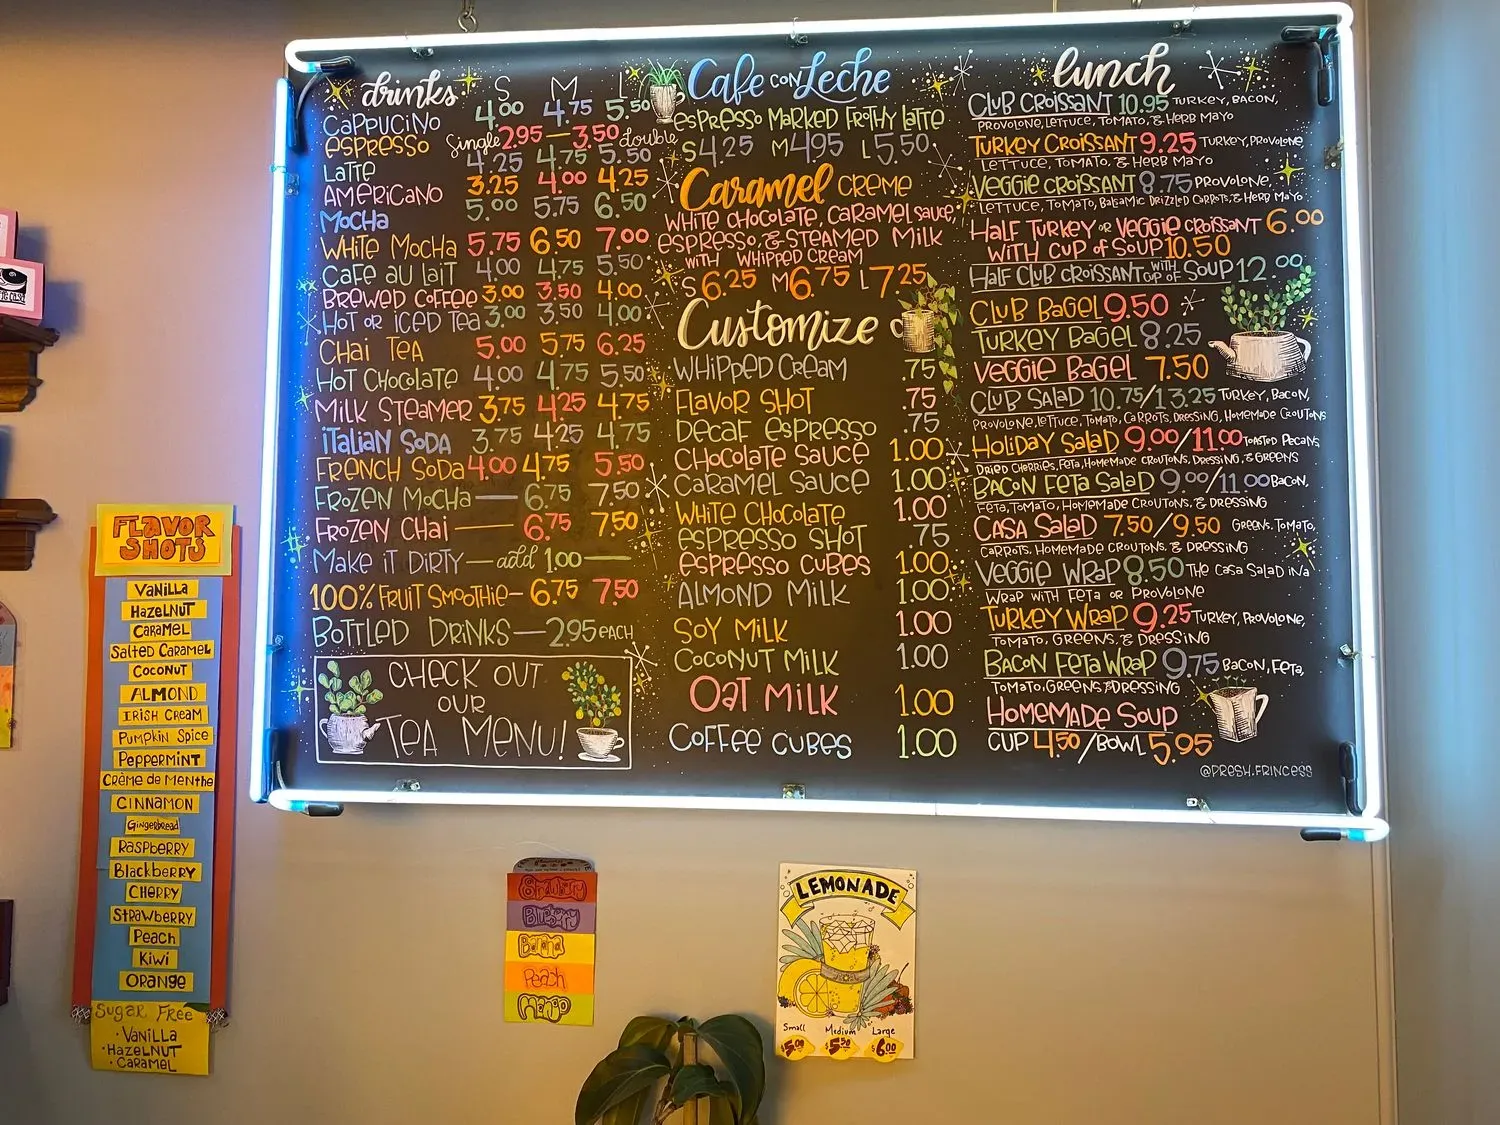 drinks S M L
CAPPUCINO 4.00 4.75 5.50
ESPRESSO Single 2.95 — 3.50 double
LATTE 4.25 4.75 5.50
AMERICANO 3.25 4.00 4.25
MOCHA 5.00 5.75 6.50
WHITE MOCHA 5.75 6.50 7.00
CAFE AU LAIT 4.00 4.75 5.50
BREWED COFFEE 3.00 3.50 4.00
HOT OR ICED TEA 3.00 3.50 4.00
CHAI TEA 5.00 5.75 6.25
HOT CHOCOLATE 4.00 4.75 5.50
MILK STEAMER 3.75 4.25 4.75
ITALIAN SODA 3.75 4.25 4.75
FRENCH SODA 4.00 4.75 5.50
FROZEN MOCHA — 6.75 7.50
FROZEN CHAI — 6.75 7.50
MAKE IT DIRTY — add 1.00 —
100% FRUIT SMOOTHIE — 6.75 7.50
BOTTLED DRINKS — 2.95 EACH
CHECK OUT
OUR
TEA MENU!
Cafe CON Leche
ESPRESSO MARKED FROTHY LATTE
S 4.25 M 4.95 L 5.50
Caramel CREME
WHITE CHOCOLATE, CARAMEL SAUCE,
ESPRESSO, & STEAMED MILK
WITH WHIPPED CREAM
S 6.25 M 6.75 L 7.25
Customize
WHIPPED CREAM .75
FLAVOR SHOT .75
DECAF ESPRESSO .75
CHOCOLATE SAUCE 1.00
CARAMEL SAUCE 1.00
WHITE CHOCOLATE 1.00
ESPRESSO SHOT .75
ESPRESSO CUBES 1.00
ALMOND MILK 1.00
SOY MILK 1.00
COCONUT MILK 1.00
OAT MILK 1.00
COFFEE CUBES 1.00
lunch
CLUB CROISSANT 10.95 TURKEY, BACON,
PROVOLONE, LETTUCE, TOMATO, & HERB MAYO
TURKEY CROISSANT 9.25 TURKEY, PROVOLONE,
LETTUCE, TOMATO, & HERB MAYO
VEGGIE CROISSANT 8.75 PROVOLONE,
LETTUCE, TOMATO, BALSAMIC DRIZZLED CARROTS, & HERB MAYO
HALF TURKEY OR VEGGIE CROISSANT 6.00
WITH CUP OF SOUP 10.50
HALF CLUB CROISSANT WITH CUP OF SOUP 12.00
CLUB BAGEL 9.50
TURKEY BAGEL 8.25
VEGGIE BAGEL 7.50
CLUB SALAD 10.75/13.25 TURKEY, BACON,
PROVOLONE, LETTUCE, TOMATO, CARROTS, DRESSING, HOMEMADE CROUTONS
HOLIDAY SALAD 9.00/11.00 TOASTED PECANS
DRIED CHERRIES, FETA, HOMEMADE CROUTONS, DRESSING, & GREENS
BACON FETA SALAD 9.00/11.00 BACON,
FETA, TOMATO, HOMEMADE CROUTONS, & DRESSING
CASA SALAD 7.50/9.50 GREENS, TOMATO,
CARROTS, HOMEMADE CROUTONS, & DRESSING
VEGGIE WRAP 8.50 THE CASA SALAD IN A
WRAP WITH FETA OR PROVOLONE
TURKEY WRAP 9.25 TURKEY, PROVOLONE,
TOMATO, GREENS, & DRESSING
BACON FETA WRAP 9.75 BACON, FETA,
TOMATO, GREENS, & DRESSING
HOMEMADE SOUP
CUP 4.50/BOWL 5.95
@PRESH.FRINCESS
FLAVOR
SHOTS
VANILLA
HAZELNUT
CARAMEL
SALTED CARAMEL
COCONUT
ALMOND
IRISH CREAM
PUMPKIN SPICE
PEPPERMINT
CRÈME DE MENTHE
CINNAMON
GINGERBREAD
RASPBERRY
BLACKBERRY
CHERRY
STRAWBERRY
PEACH
KIWI
ORANGE
SUGAR FREE
· VANILLA
· HAZELNUT
· CARAMEL
Strawberry
Blueberry
Banana
Peach
Mango
LEMONADE
Small Medium Large
$5.00 $5.50 $6.00